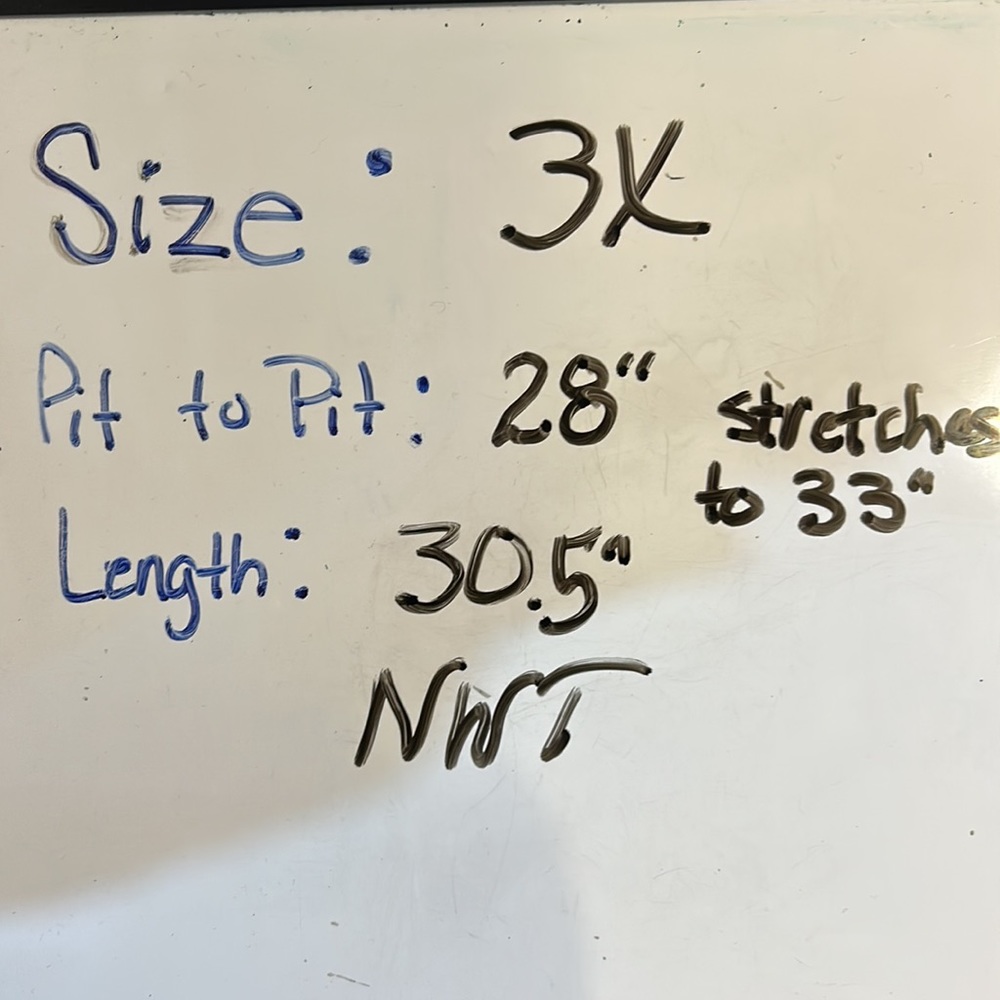 Size: 3X
Pit to Pit: 28" stretches
to 33"
Length: 30.5"
NWT